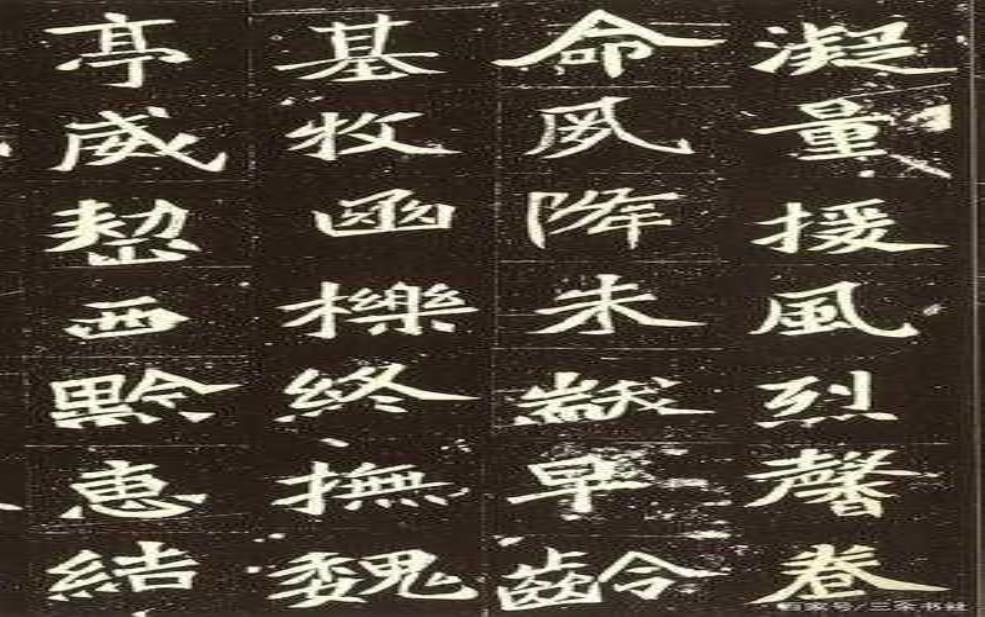 凝量援風烈馨卷
命夙降未早齡
基牧函櫟終撫魏
亭威西黔惠結
百家号/三余书社